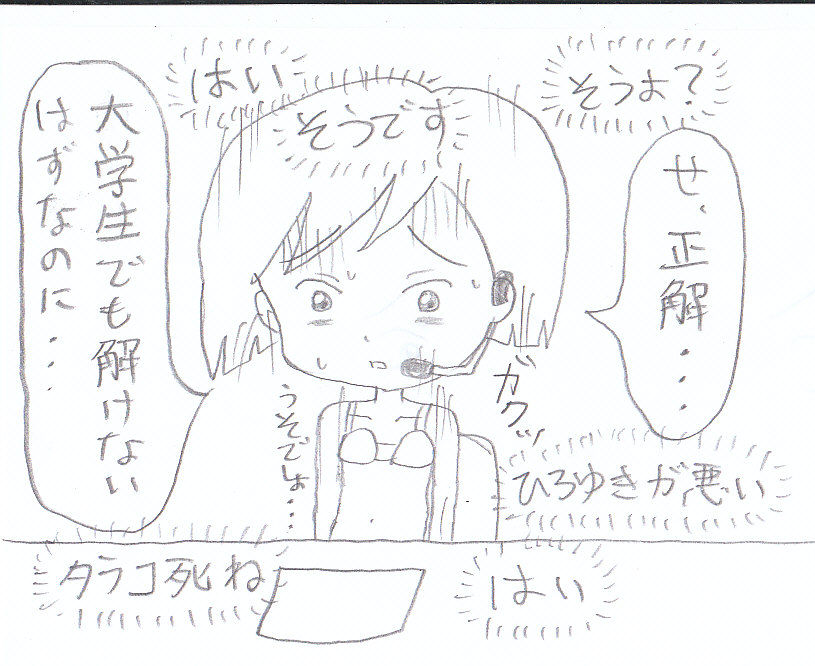 そうよ？
はい
そうです
せ、正解・・・
大学生でも解けない
はずなのに・・・
ガクッ
うそでしょ・・・
ひろゆきが悪い
タラコ死ね
はい